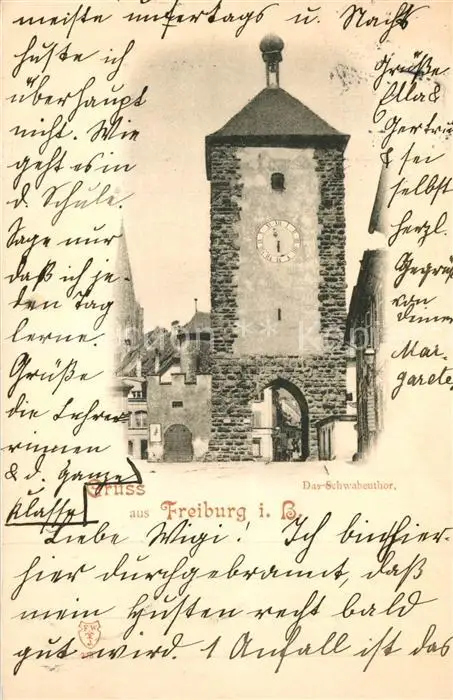 meiste untertags u. Nachts
huste ich
überhaupt
nicht. Wie
geht es in
d. Schule.
Sage nur
daß ich je-
den Tag
lerne.
Grüße
die Lehrer
rinnen
& d. Ganze
Klasse
Grüße
Ella &
Gertru
& sei
selbst
herzl.
Gegrüß
von
deiner
Mar-
garete
Das Schwabenthor.
Gruss
aus Freiburg i. B.
Liebe Wigi! Ich bin hier-
hier durchgebrannt, daß
mein Husten recht bald
gut wird. 1 Anfall ist das